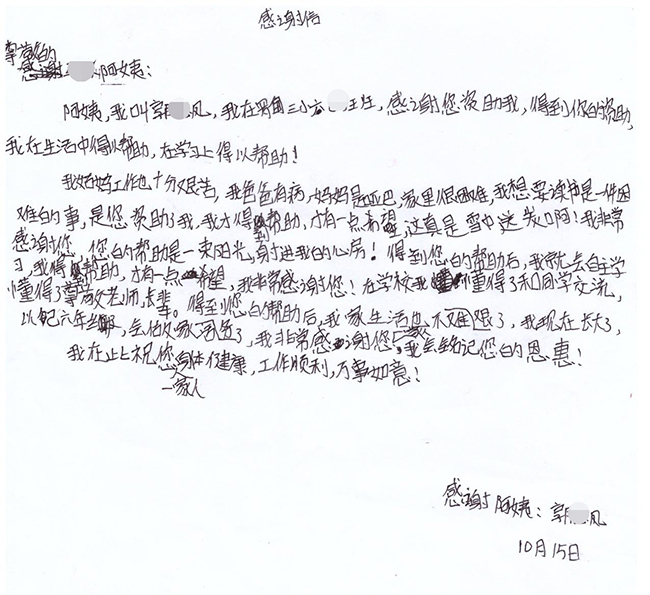 感谢信
尊敬的
阿姨：
阿姨，我叫郭凤，我在男角三小六，感谢您资助我，得到你的资助，
我在生活中得以帮助，在学习上得以帮助！
我妈妈工作也十分艰苦，我爸爸有病，妈妈是哑巴，家里很困难，我想要读书是一件困
难的事，是您资助了我，我才得到帮助，才有一点希望，这真是雪中送炭啊！我非常
感谢您，您的帮助是一束阳光，射进我的心房！得到您的帮助后，我就去自主学
习，我得到帮助，才有一点希望，我非常感谢您！在学校我懂得了和同学交流，
懂得了尊敬老师，长辈。得到您的帮助后，我家生活也不困艰了，我现在长大了，
以记六年，我非常感谢您一家，我会铭记您的恩惠！
我在止上祝您一家人身体健康，工作顺利，万事如意！
感谢阿姨：郭凤
10月15日